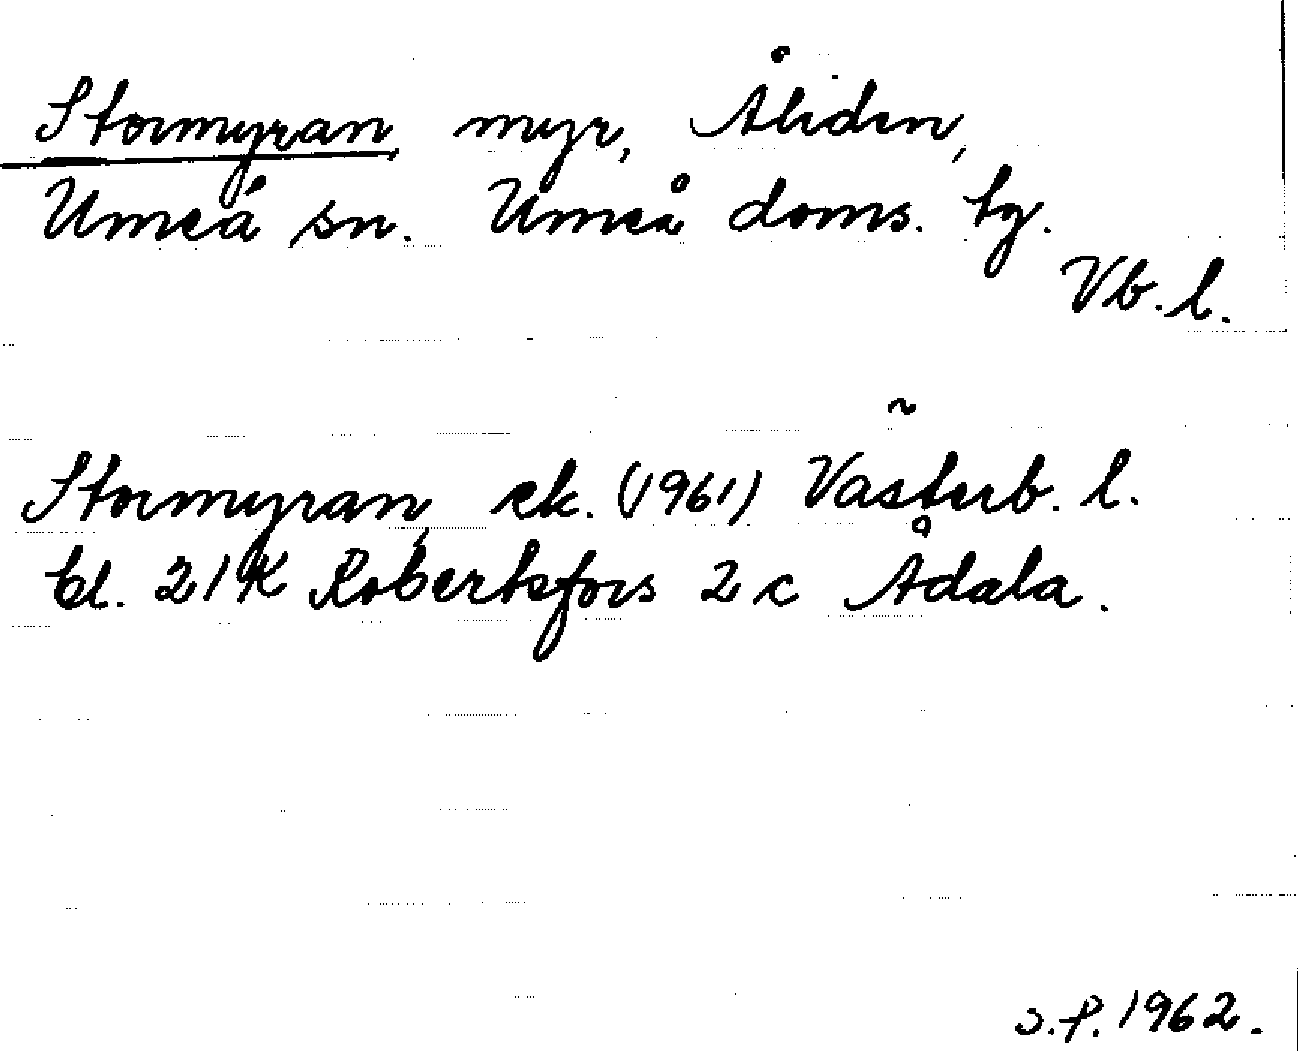 Stormyran, myr, Åliden,
Umeå sn. Umeå doms. tg.
Vb. l.
Stormyran, ek. (1961) Västerb. l.
bl. 21K Robertsfors 2 c Ådala.
s.f. 1962.